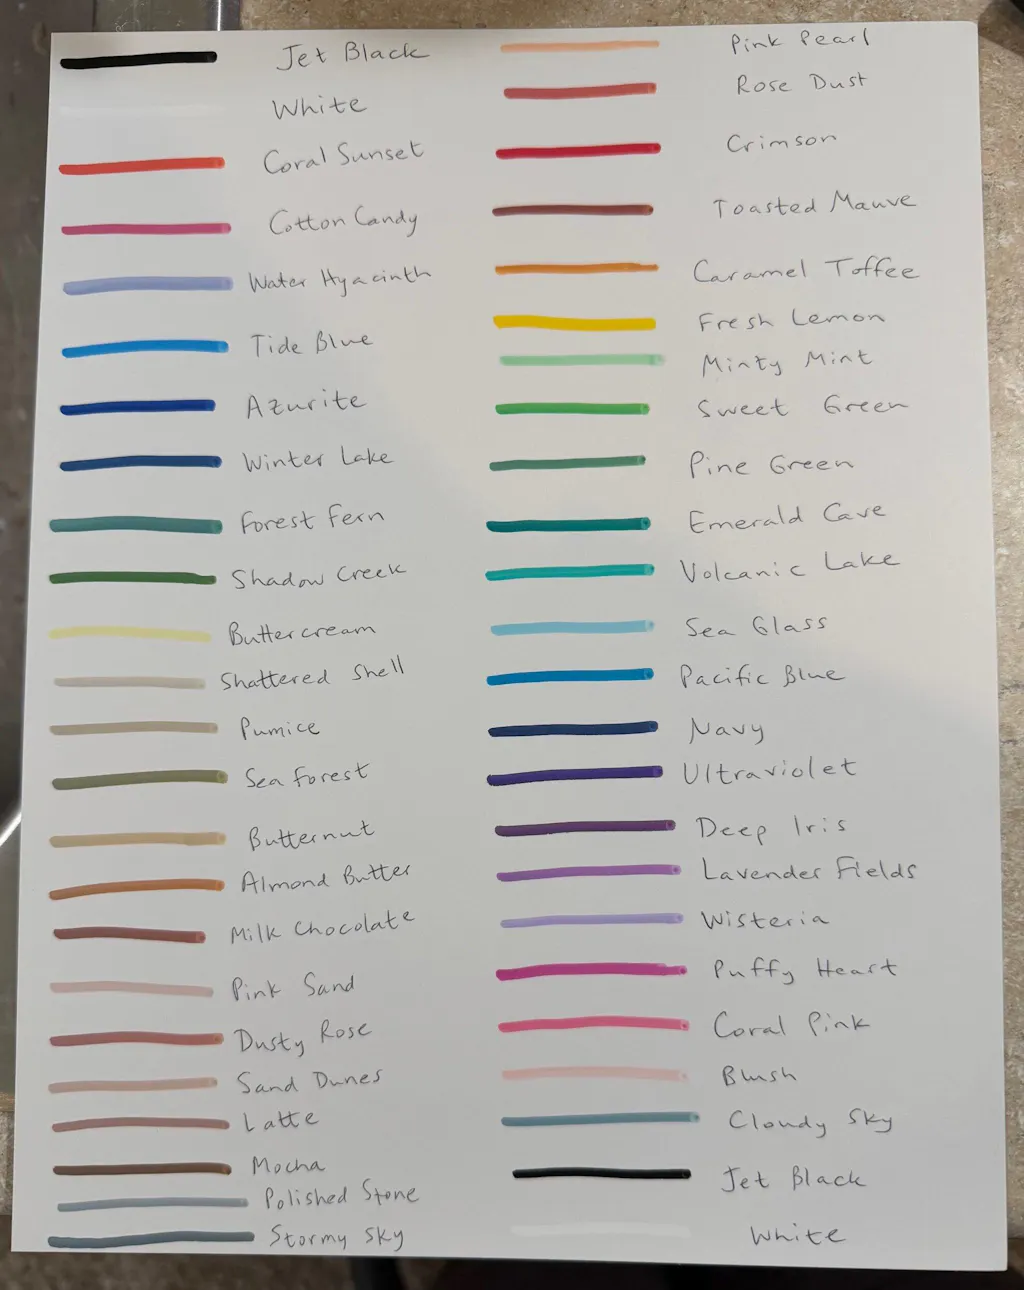 Jet Black
White
Coral Sunset
Cotton Candy
Water Hyacinth
Tide Blue
Azurite
Winter Lake
Forest Fern
Shadow Creek
Buttercream
Shattered Shell
Pumice
Sea Forest
Butternut
Almond Butter
Milk Chocolate
Pink Sand
Dusty Rose
Sand Dunes
Latte
Mocha
Polished Stone
Stormy Sky
Pink Pearl
Rose Dust
Crimson
Toasted Mauve
Caramel Toffee
Fresh Lemon
Minty Mint
Sweet Green
Pine Green
Emerald Cave
Volcanic Lake
Sea Glass
Pacific Blue
Navy
Ultraviolet
Deep Iris
Lavender Fields
Wisteria
Puffy Heart
Coral Pink
Blush
Cloudy Sky
Jet Black
White